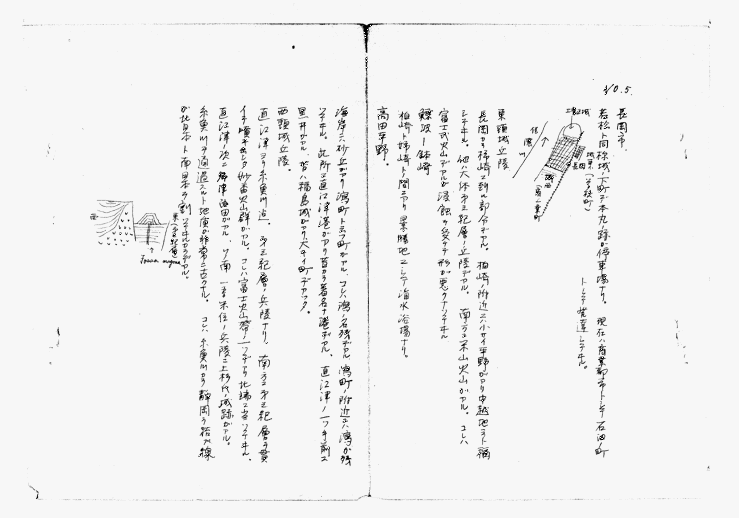 No.5.
長岡市.
若松ト同様城下町デ本丸ノ跡ガ停車場ナリ。 現在ハ商業都市トシテ石油ノ町
トシテ発達シテヰル。
信濃川
長岡
東頸城丘陵
長岡カラ柿崎ニ到ル部分デアル。 柏崎ノ附近ニ小サイ平野ガアリ中越地方ト稱
シテヰル。 他ハ大体第三紀層ノ丘陵デアル。 南方ニ米山火山ガアル。 コレハ
富士式火山デアルガ浸蝕ヲ受ケテ形ガ悪クナツテヰル
鯨波ト鉢崎
柏崎ト柿崎トノ間ニアリ 景勝地ニシテ海水浴場ナリ。
高田平野.
海岸ニ砂丘ガアリ潟町ト云フ町ガアル。 コレハ潟ノ名残デアル 潟町ノ附近ニハ潟ガ残
ツテヰル。 此所ニ直江津港ガアリ昔カラ著名ナ港デアル。 直江津ノ一ツ手前ニ
黒井ガアル 昔ハ福島城ガアリ大キイ町デアツタ。
西頸城丘陵。
直江津ヨリ糸魚川迄。 第三紀層ノ丘陵ナリ。 南方ニ第三紀層ヲ貫
イテ噴キ出シタ妙高火山群ガアル。 コレハ富士火山帯ノ一ツデアリ北端ニ当ツテヰル。
直江津ノ次ニ郷津油田ガアル。 ソノ南
糸魚川ヲ通過スルト地質ガ非常ニ古クナル。 コレハ糸魚川カラ静岡ヲ結ブ線
ガ北日本ト南日本ヲ割ツテヰルカラデアル。
西
東
Fossa magna